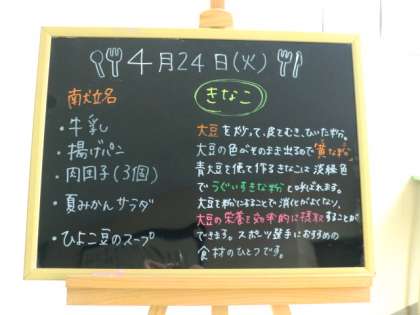 4月24日(火)
献立名
・牛乳
・揚げパン
・肉団子(3個)
・夏みかんサラダ
・ひよこ豆のスープ
きなこ
大豆を炒って、皮をむき、ひいた粉。
大豆の色がそのまま出るので"黄な粉"
青大豆を使て作るきなこは淡緑色
でうぐいすきな粉とよばれます。
大豆を粉にすることで消化がよくなり、
大豆の栄養を効率的に摂取することが
できます。スポーツ選手におすすめの
食材のひとつです。